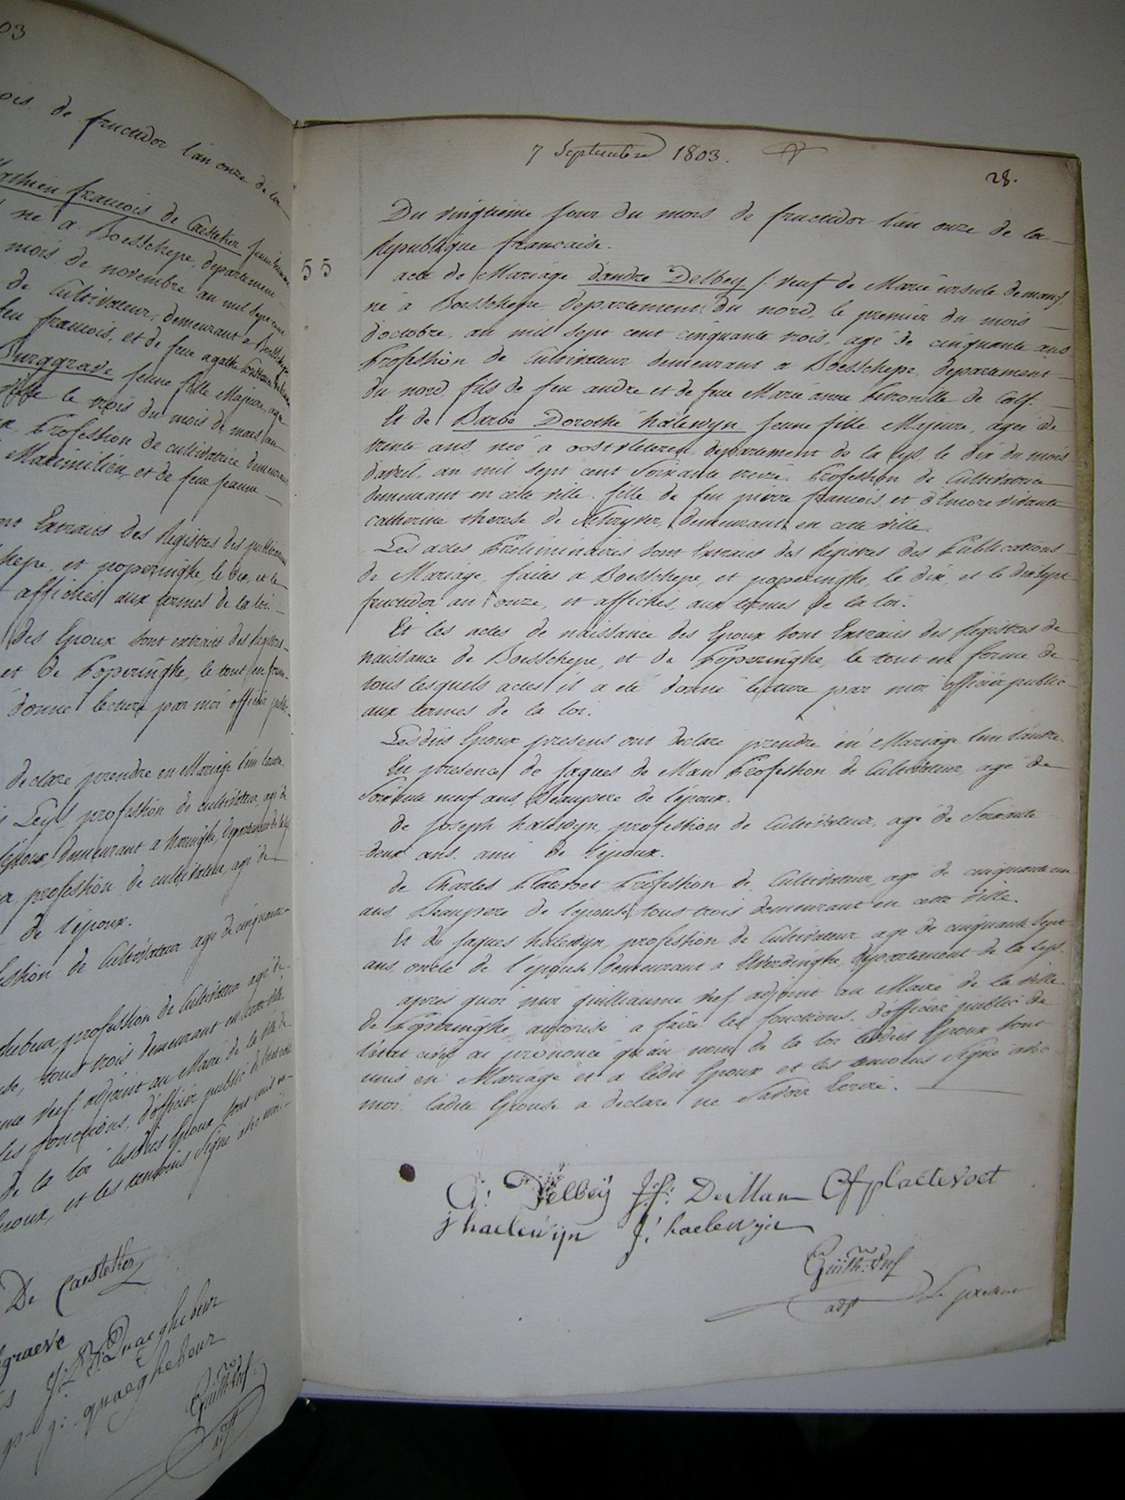 03
ois de fructidor l'an onze de la
françois de Caesteker jeune
né a Boesschepe, departement
mois de novembre an mil sept cent
de Cultivateur, demeurant a
feu francois, et de feue agathe
Burggrave jeune fille Majeure, agée
le trois du mois de mars an
Profession de cultivatrice demeurant
Maximilien, et de feue jeanne
Extraits des Registres des publications
et poperinghe, le dix, et le
affichés aux formes de la loi.
des Epoux sont extraits des Registres
et de Poperinghe, le tout en forme
donné lecture par moi officier public
declaré prendre en Mariage l'un l'autre
Leys profession de cultivateur, agé de
demeurant a
profession de cultivateur, agé de
de l'épouse.
de Cultivateur agé de cinquante
profession de Cultivateur agé de
tous trois demeurant en cette ville.
nef adjoint au Maire de la ville de
les fonctions, d'officier public de l'état civil
de la loi lesdits Epoux sont unis en
Epoux, et les temoins signé avec moi
De Caesteker
graeve
Quaghebeur
j: quaeghebeur
Guilh. nef
adjt
7 Septembre 1803.
28.
Du vingtieme jour du mois de fructidor l'an onze de la
Republique francaise.
55
acte de Mariage d'andre Delbey / veuf de Marie ursule deman /
né à Boesschepe departement du nord, le premier du mois
d'octobre, an mil sept cent cinquante trois, agé de cinquante ans
Profession de Cultivateur demeurant a Boesschepe, departement
du nord, fils de feu andre et de feue Marie anne Petronille de Calf.
Et de Barbe Dorothé halewyn jeune fille Majeure, agée de
trente ans, née a oostvleteren departement de la Lys, le dix du mois
d'avril, an mil sept cent Soixante treize, Profession de Cultivatrice
demeurant en cette ville, fille de feu pierre francois et d'Encore vivante
catherine therese de demeurant en cette ville.
Les actes Preliminaires sont Extraits des Registres des Publications
de Mariage, faites a Boesschepe, et poperinghe, le dix, et le dixsept
fructidor an onze, et affichés, aux termes de la loi.
Et les actes de naissance des Epoux sont Extraits des Registres de
naissance de Boesschepe, et de Poperinghe, le tout en forme de
tous lesquels actes il a eté donné lecture par moi officier public
aux termes de la loi.
Lesdits Epoux presens ont declaré prendre en Mariage l'un l'autre
En presence de Jaques de Man Profession de Cultivateur, agé de
Soixante neuf ans, Beaupere de l'époux.
de Joseph halewyn, profession de Cultivateur, agé de Soixante
deux ans, ami de l'époux.
de Charles Plaetvoet Profession de Cultivateur, agé de cinquante un
ans Beaupere de l'épouse, tous trois demeurant en cette ville.
Et de Jaques halewyn, profession de Cultivateur agé de cinquante sept
ans, oncle de l'épouse demeurant a Elverdinghe, departement de la Lys
apres quoi moi guilliaume nef adjoint au Maire de la ville
de Poperinghe, autorisé a faire les fonctions, d'officier public de
l'état civil ai prononcé qu'au nom de la loi lesdits Epoux sont
unis en Mariage et a ledit Epoux et les temoins signé avec
moi, ladite Epouse a declaré ne savoir Ecrire.
A: Delbeÿ J:f: De Man Cf plaetevoet
j haelewijn J: haelewijn
Guilh. nef
adjt